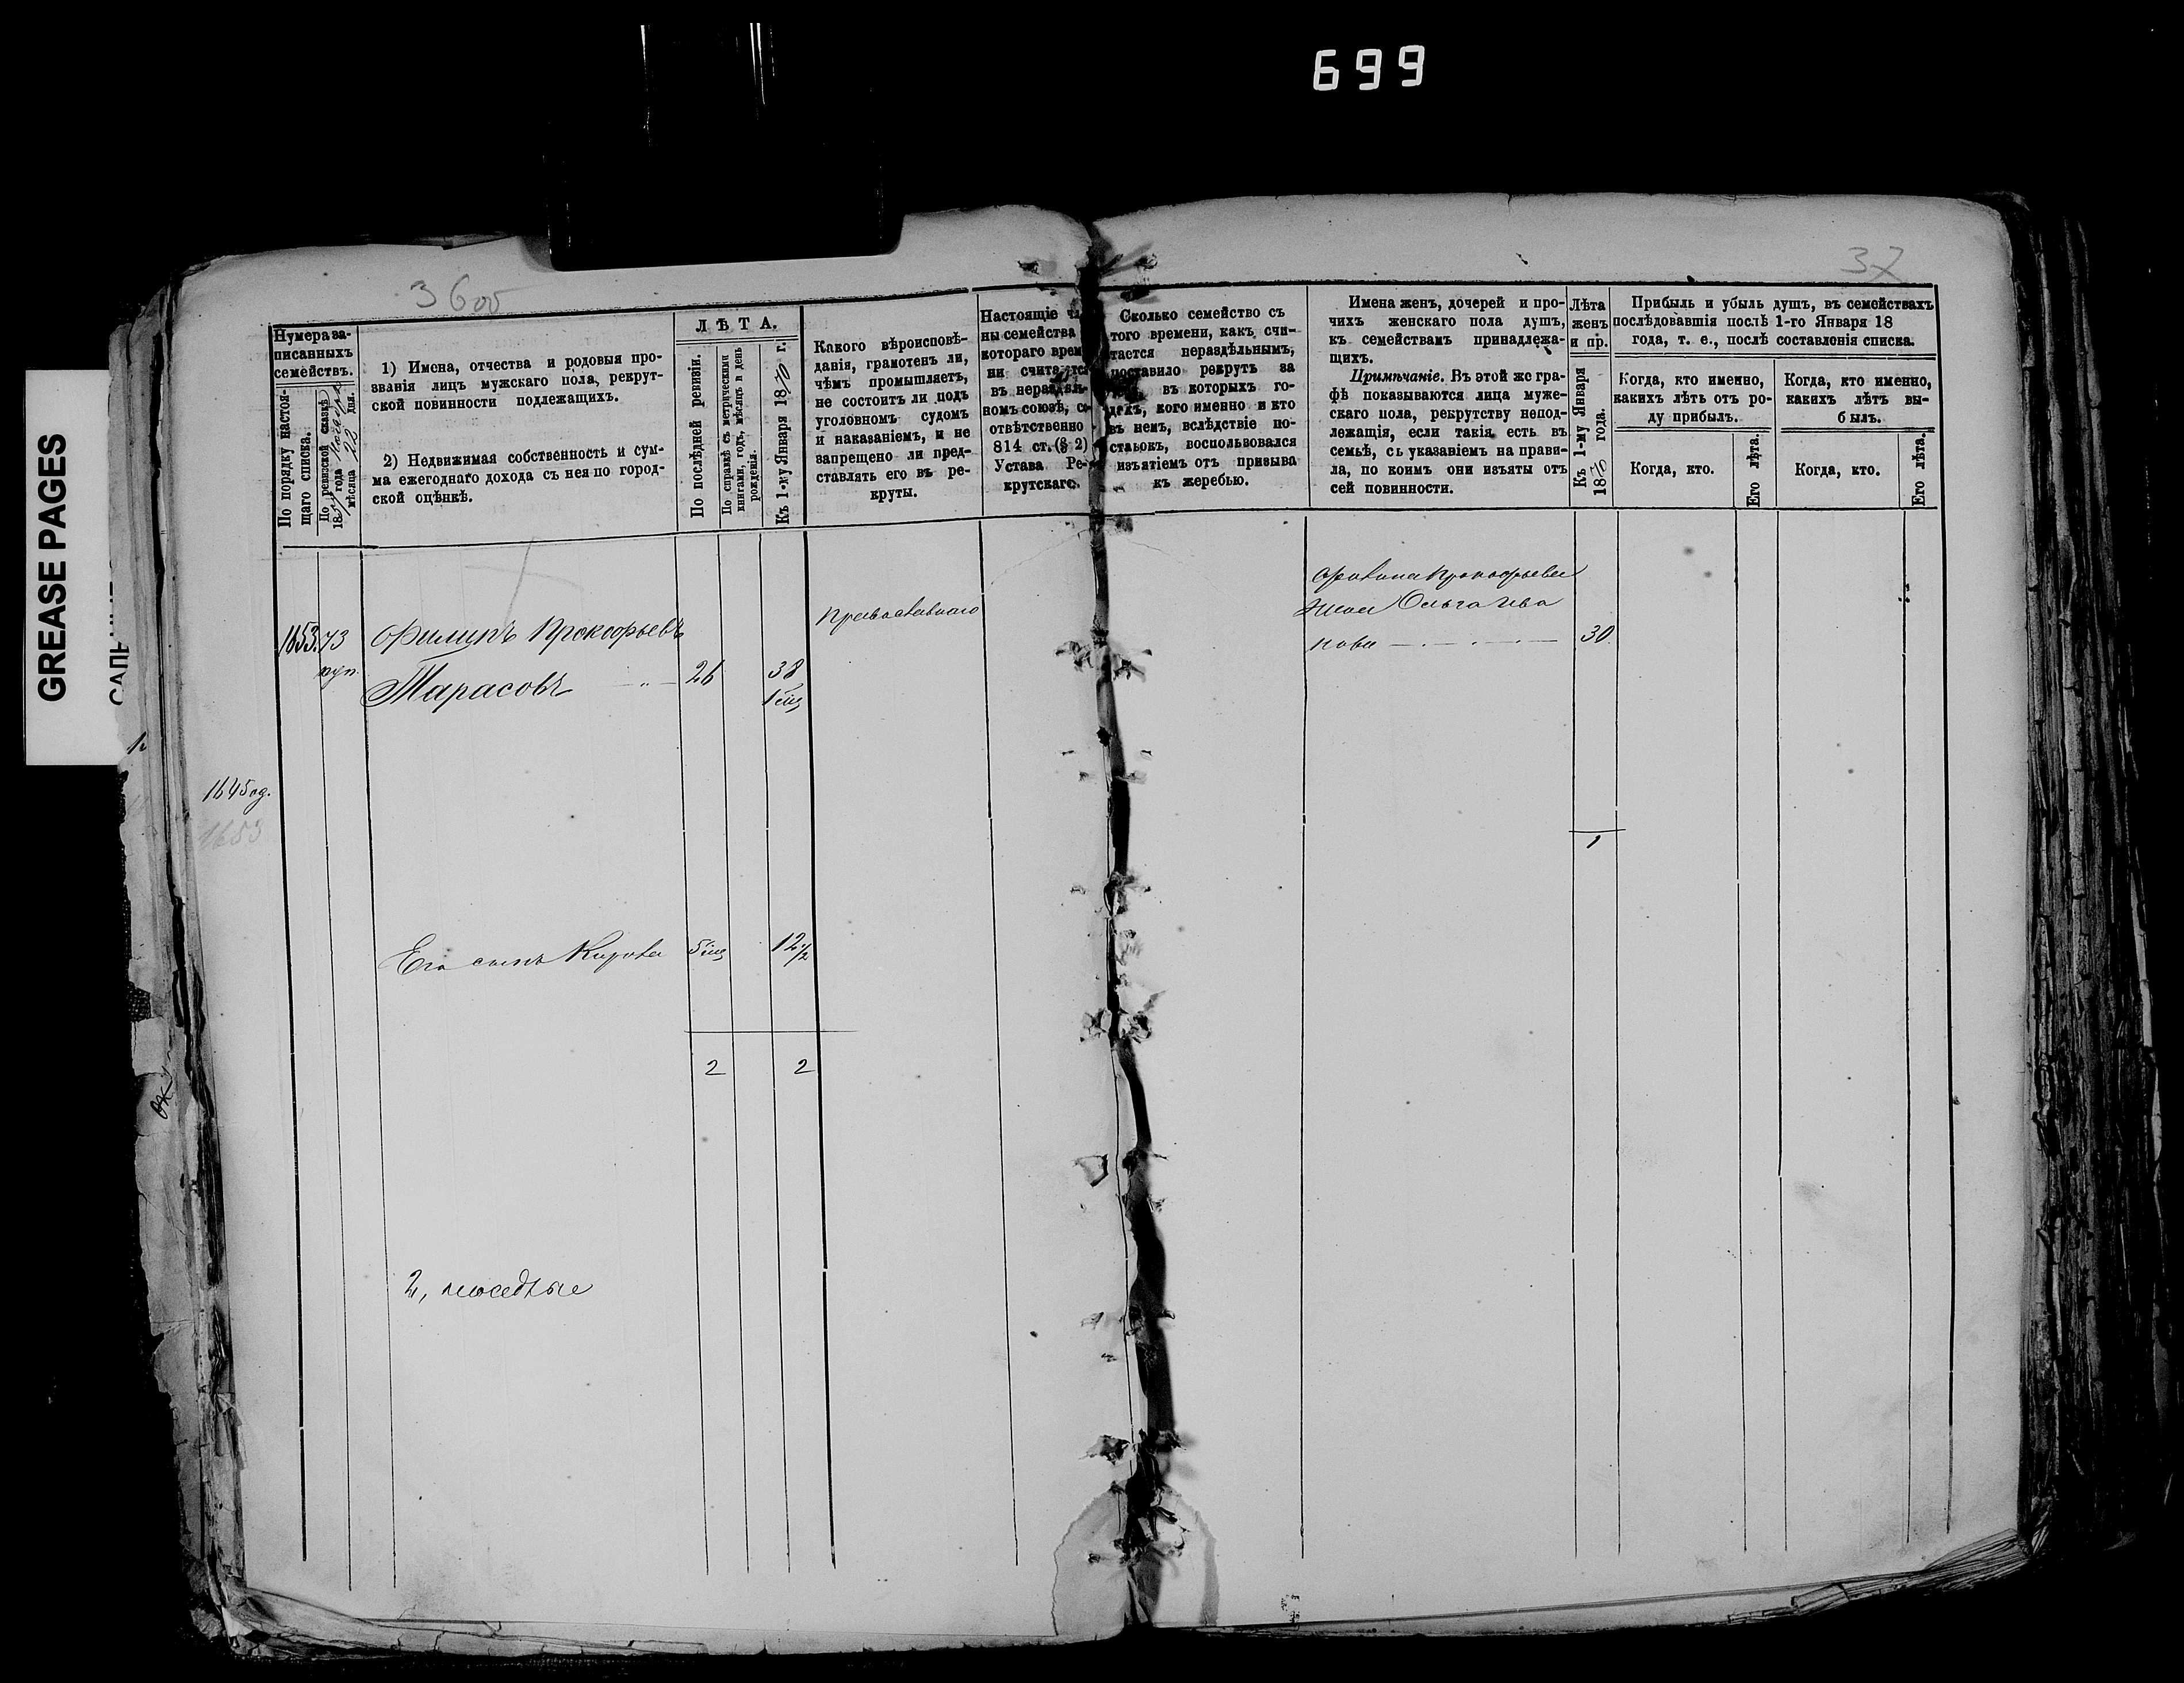 699
GREASE PAGES
36 об
37
Нумера за-
писанныхъ
семействъ.
По порядку настоя-
щаго списка.
По ревизской сказкѣ
185 года
мѣсяца 22 дня.
1) Имена, отчества и родовыя про-
званія лицъ мужскаго пола, рекрут-
ской повинности подлежащихъ.
2) Недвижимая собственность и сум-
ма ежегоднаго дохода съ нея по город-
ской оцѣнкѣ.
ЛѢТА.
По послѣдней ревизіи.
По справкѣ съ метрическими
книгами, годъ, мѣсяцъ и день
рожденія.
Къ 1-му Января 1870 г.
Какого вѣроисповѣ-
данія, грамотенъ ли,
чѣмъ промышляетъ,
не состоитъ ли подъ
уголовномъ судомъ
и наказаніемъ, и не
запрещено ли пред-
ставлять его въ ре-
круты.
Настоящіе
ны семейства
котораго врем
ни считается
въ нераздѣль-
номъ союзѣ, со-
отвѣтственно
814 ст. (§ 2)
Устава Ре-
крутскаго.
Сколько семейство съ
того времени, какъ счи-
тается нераздѣльнымъ,
поставило рекрутъ за
въ которыхъ го-
дахъ, кого именно и кто
въ немъ, вслѣдствіе по-
ставокъ, воспользовался
изъятіемъ отъ призыва
къ жеребью.
Имена женъ, дочерей и про-
чихъ женскаго пола душъ,
къ семействамъ принадлежа-
щихъ.
Примѣчаніе. Въ этой же гра-
фѣ показываются лица муже-
скаго пола, рекрутству непод-
лежащія, если такія есть въ
семьѣ, съ указаніемъ на прави-
ла, по коимъ они изъяты отъ
сей повинности.
Лѣта
женъ
и пр.
Къ 1-му Января
1870 года.
Прибыль и убыль душъ, въ семействахъ
послѣдовавшія послѣ 1-го Января 18
года, т. е., послѣ составленія списка.
Когда, кто именно,
какихъ лѣтъ отъ ро-
ду прибылъ.
Когда, кто.
Его лѣта.
Когда, кто именно,
какихъ лѣтъ вы-
былъ.
Когда, кто.
Его лѣта.
1653. 73 Филипъ Прокофьевъ
куп. Тарасовъ 26 38
Православнаго
Прокофьева
жена Ольга Ива
нова 30
1
1645 од.
1653
Его сынъ 12 1/2
2 2
2,